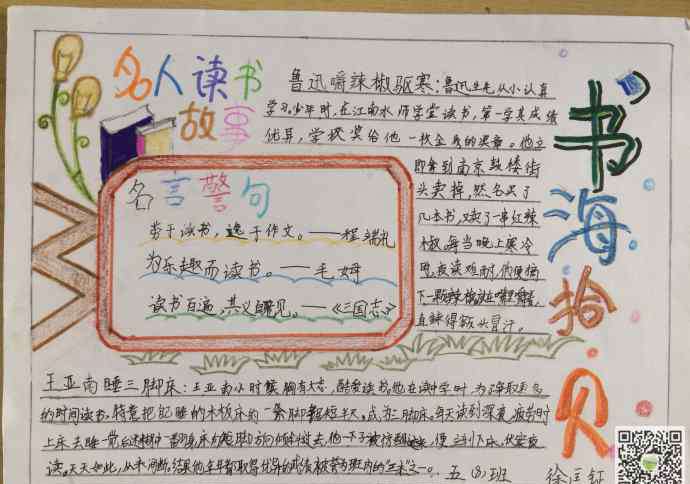 名人读书
故事
鲁迅嚼辣椒驱寒:鲁迅先生从小认真
学习。少年时,在江南水师学堂读书,第一学期成绩
优异,学校奖给他一枚金质的奖章。他立
即拿到南京鼓楼街
头卖掉,然后买了
几本书,又买了一串红辣
椒。每当晚上寒冷
时,夜读难耐,他便摘
下一颗辣椒,放在嘴里嚼着,
直辣得额头冒汗。
书海拾贝
名言警句
劳于读书,逸于作文。——程端礼
为乐趣而读书。——毛姆
读书百遍,其义自见。——《三国志》
王亚南睡三脚床:王亚南小时候胸有大志,酷爱读书。他在读中学时,为了争取更多
的时间读书,特意把自己睡的木板床的一条脚锯短半尺,成为三脚床。每天读到深夜,疲劳时
上床去睡一觉后迷糊中一翻身,床向短脚方向倾斜过去,他一下子被惊醒过来,便立刻下床,伏案夜
读。天天如此,从未间断。结果他年年都取得优异的成绩,被誉为班内的"三杰"之一。
五(8)班
徐